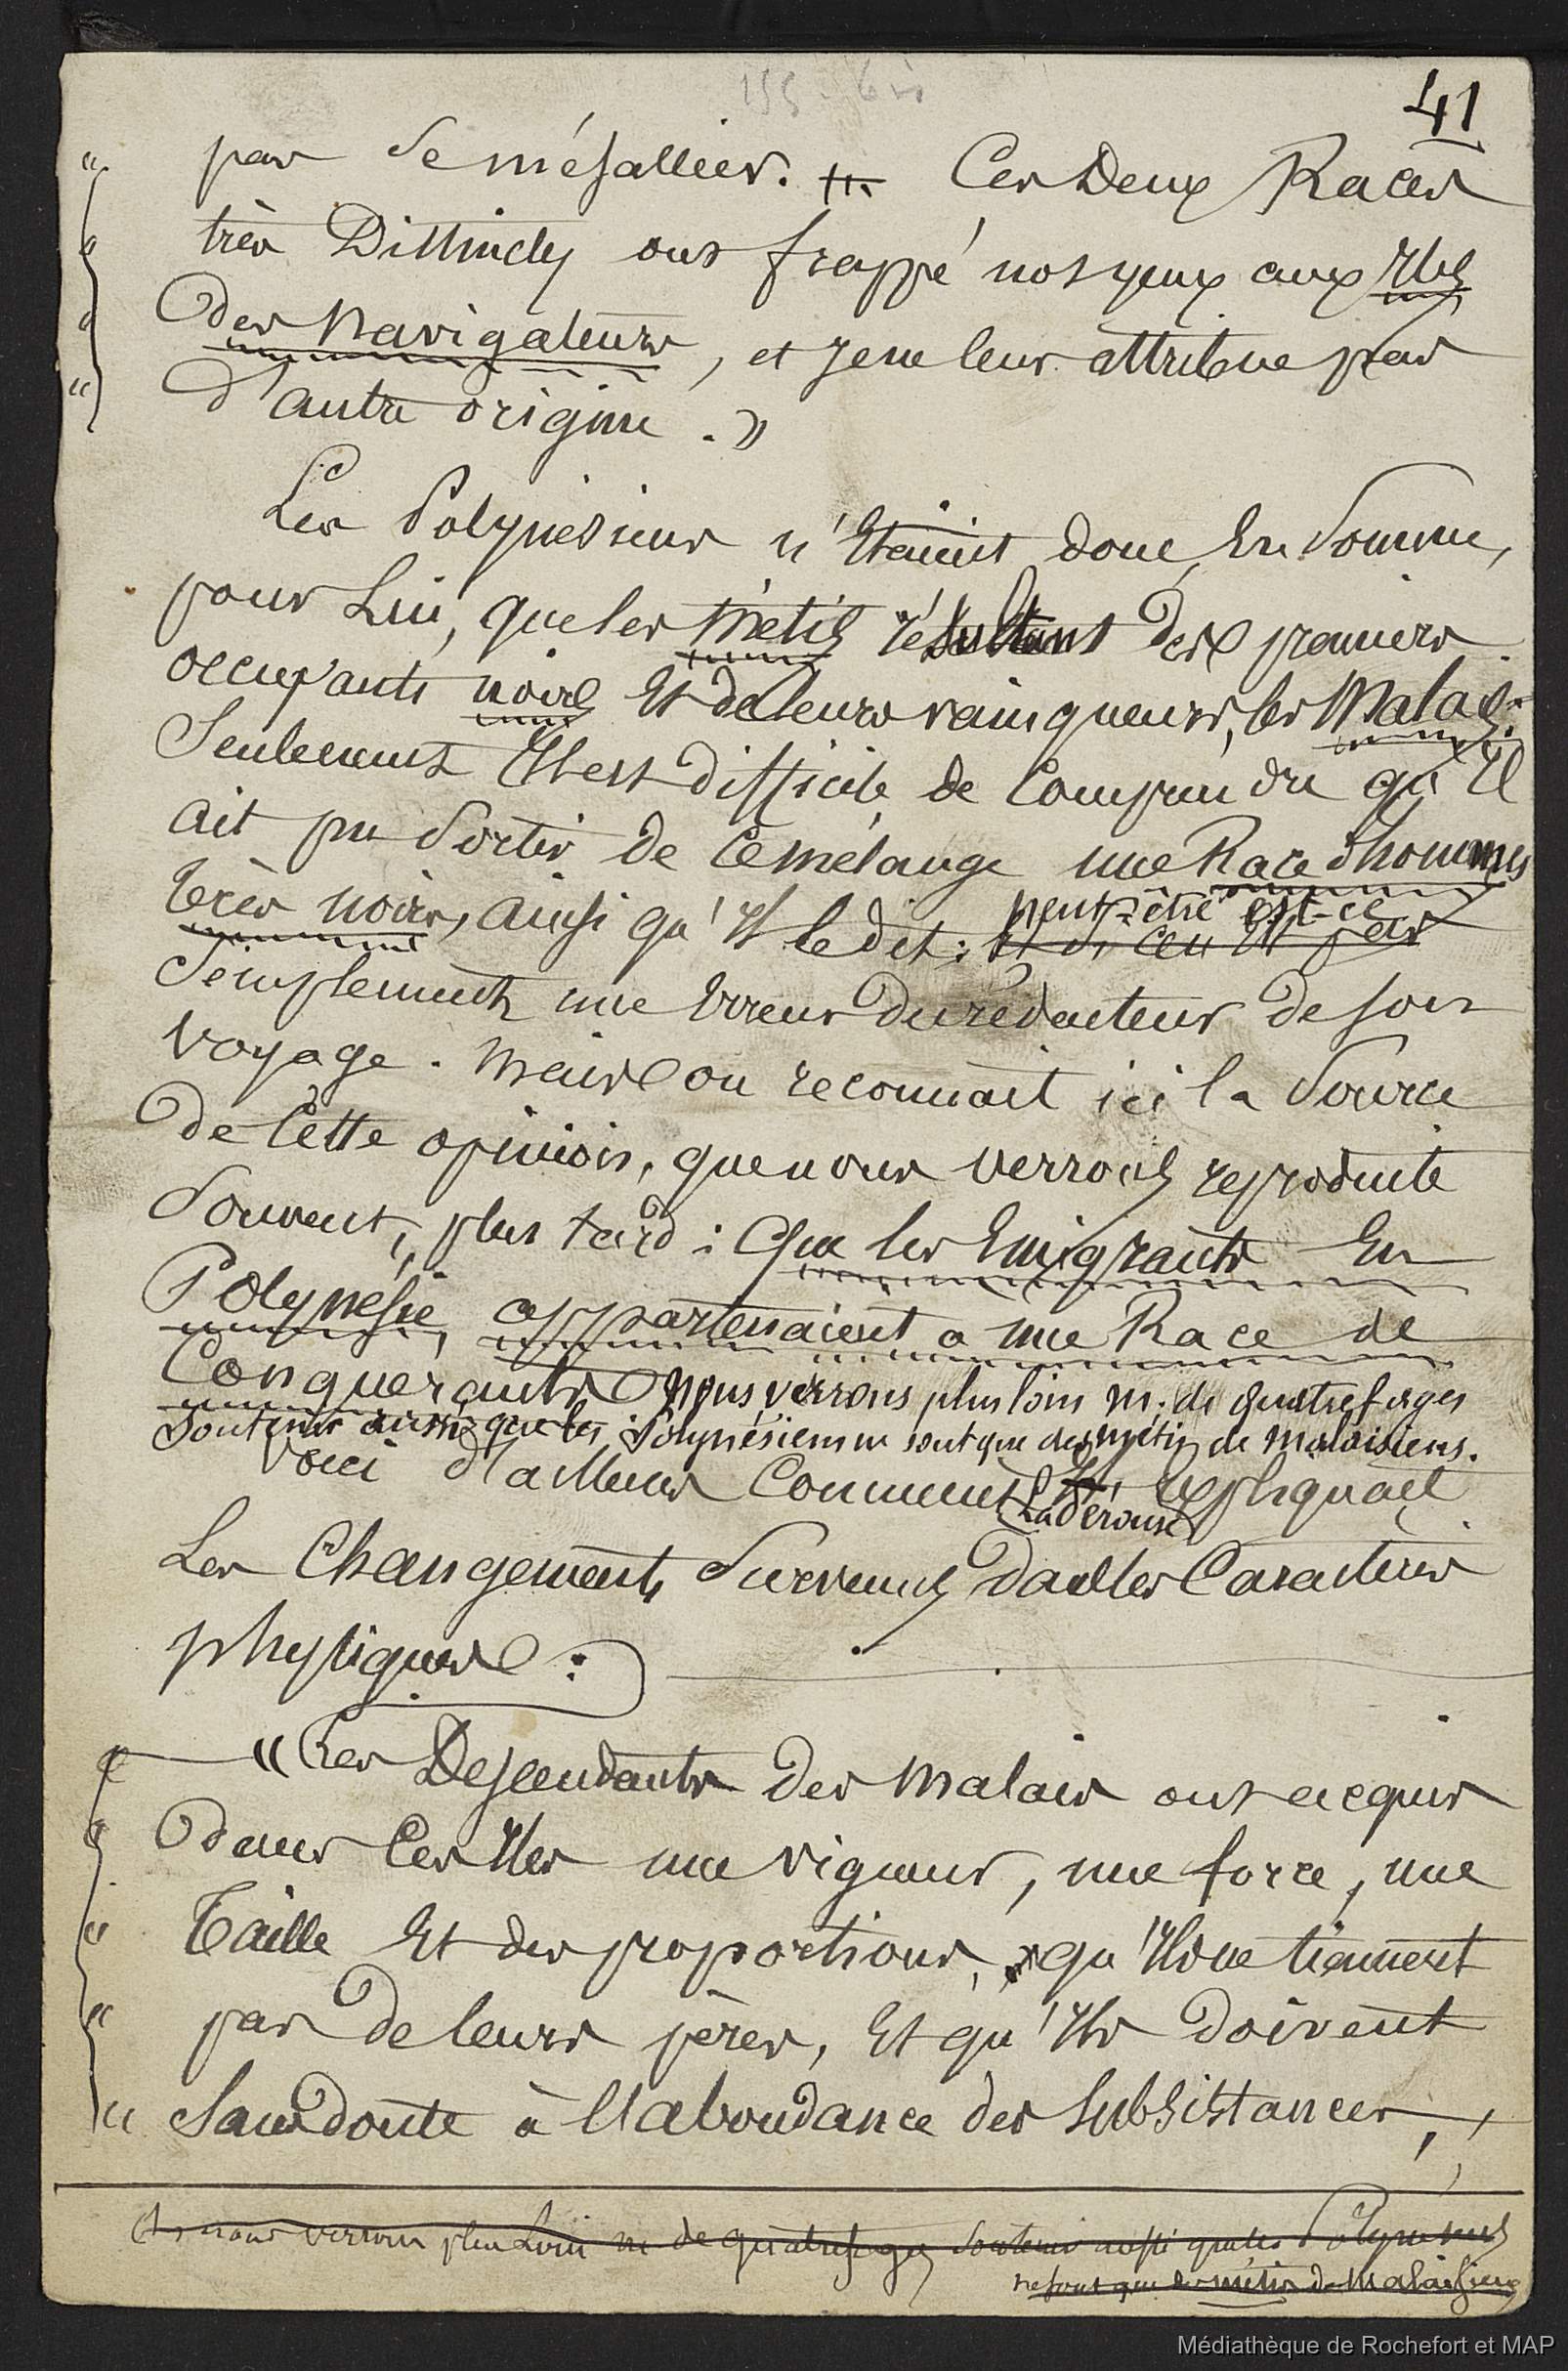 155 - bis
41
" pas se mésallier. Ces Deux Races
" très Distinctes ont frappé nos yeux aux Iles
" des Navigateurs, et je ne leur attribue pas
" d'autre origine. »
Les Polynésiens n'Etaient donc, En Somme,
pour Lui, que les Métis résultant des premiers
occupants noirs Et de leurs vainqueurs, les Malais.
Seulement Il est difficile de Comprendre qu'Il
ait pu Sortir de Ce mélange une Race d'hommes
très noirs, ainsi qu'Il le dit: peut-être est-ce
Simplement une Erreur du rédacteur de son
voyage. Mais on reconnait ici la Source
de Cette opinion, que nous verrons reproduite
Souvent, plus tard: Que les Emigrants En
Polynésie appartenaient a une Race de
Conquérants nous verrons plus loin M. de Quatrefages
soutenir aussi que les Polynésiens ne sont que des métis de malaisiens.
Voici d'ailleurs Comment Lapérouse Expliquait
Les Changements Survenus dans les Caractères
physiques:
" « Ces Descendants des Malais ont acquis
" dans Ces Iles une vigueur, une force, une
" Taille Et des proportions, qu'Ils ne tiennent
" pas de leurs pères, Et qu'Ils doivent
" Sans doute à l'abondance des Subsistances,
nous verrons plus Loin M de Quatrefages Soutenir aussi que les Polynésiens
ne sont que des métis de Malaisiens
Médiathèque de Rochefort et MAP